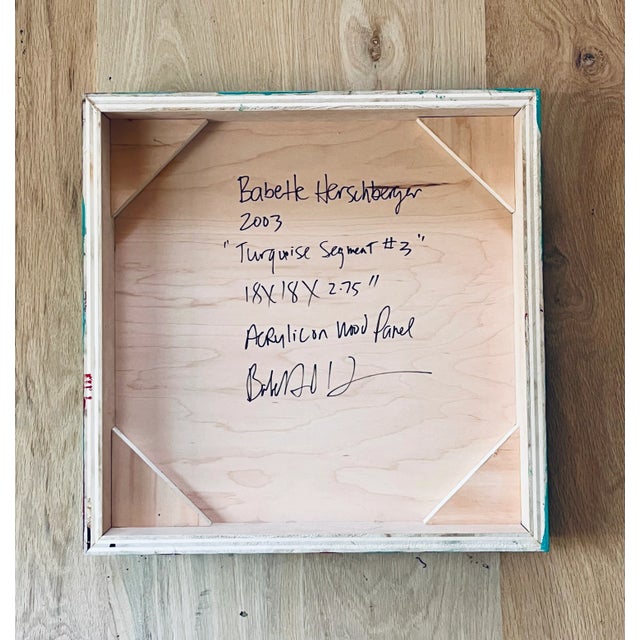 Babette Herschberger
2003
"Turquoise Segment #3"
18X18X2.75"
Acrylic on Wood Panel